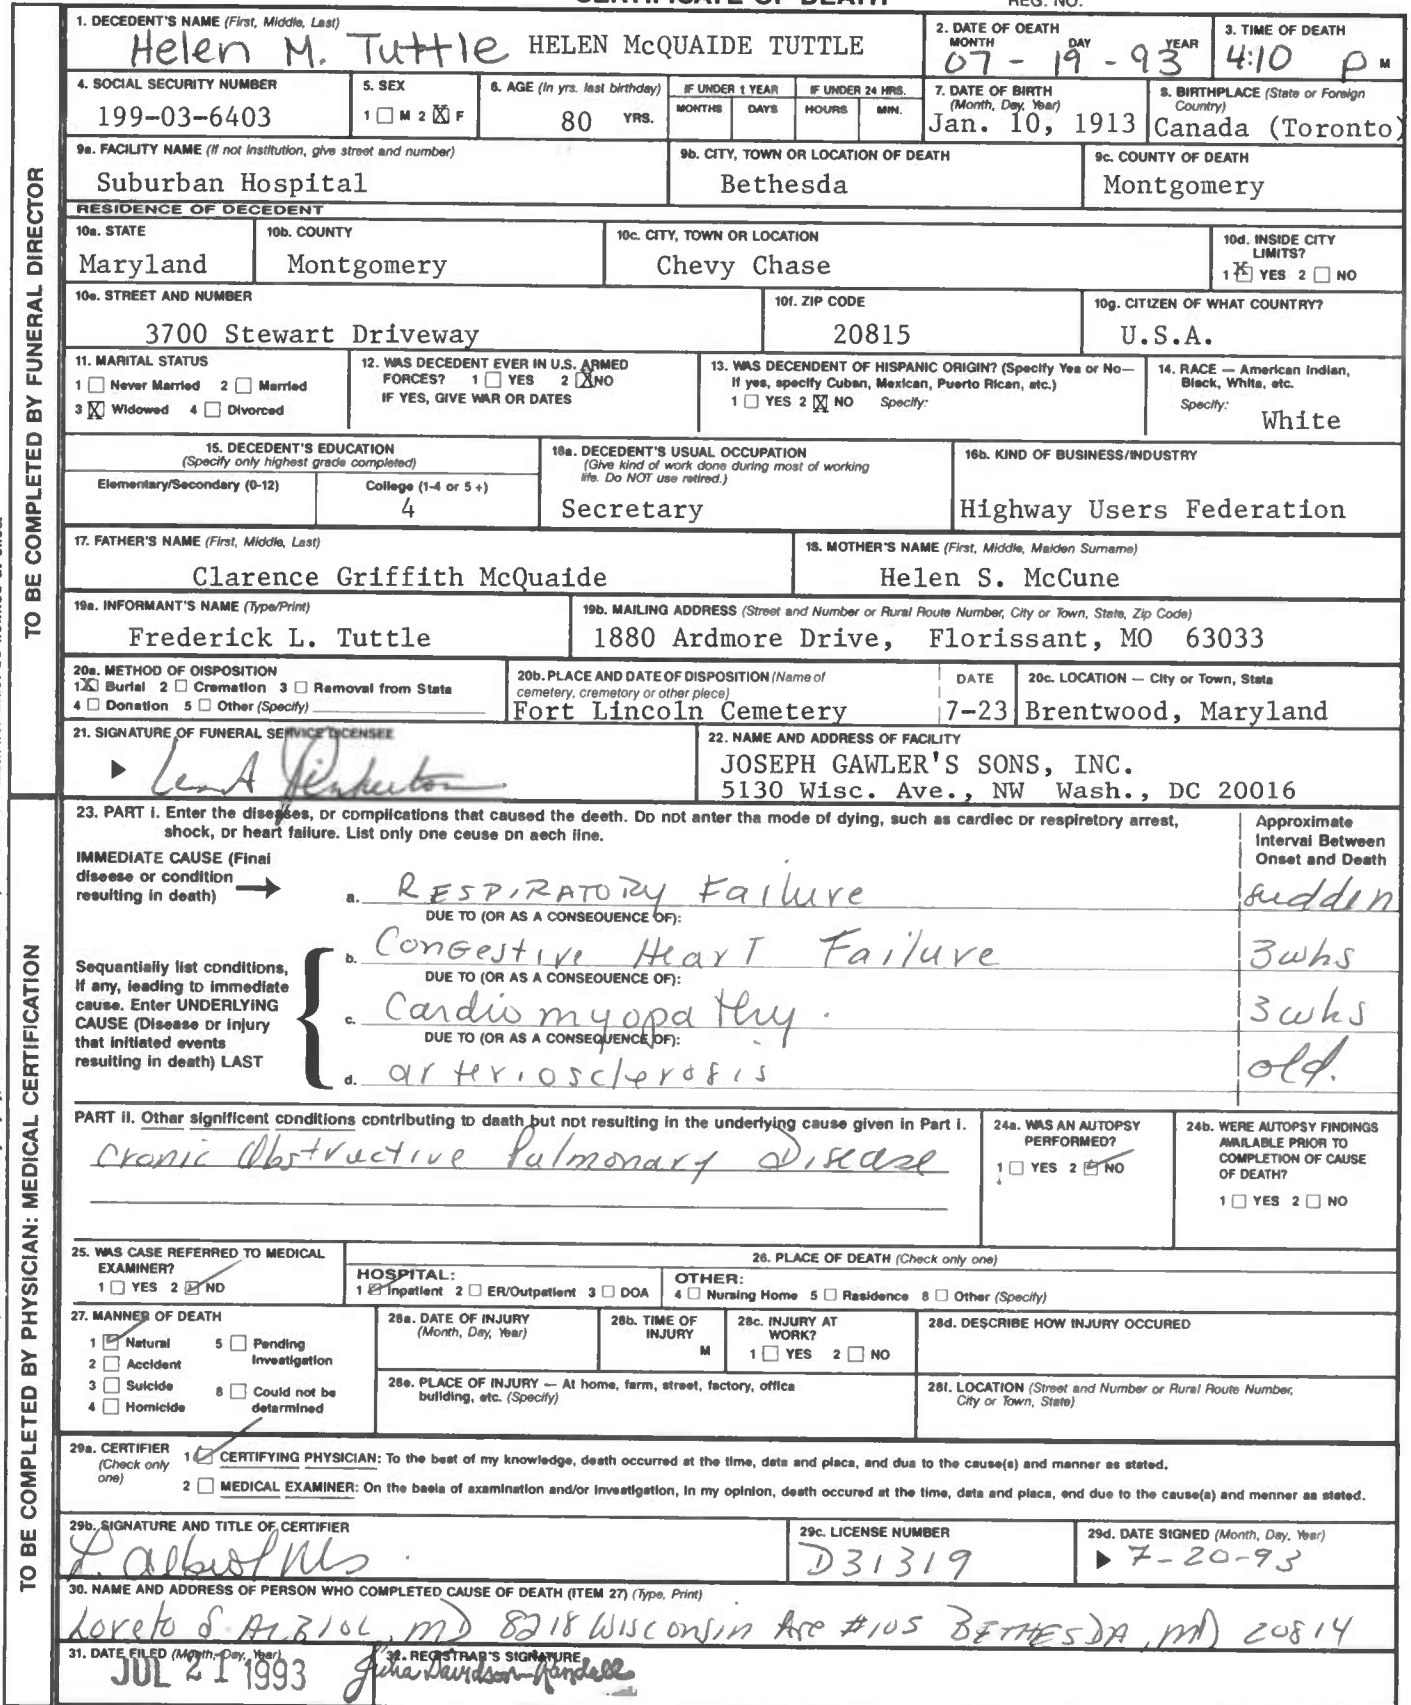 CERTIFICATE OF DEATH REG. NO.
1. DECEDENT'S NAME (First, Middle, Last)
Helen M. Tuttle HELEN McQUAIDE TUTTLE
2. DATE OF DEATH
MONTH DAY YEAR
07 - 19 - 93
3. TIME OF DEATH
4:10 P M
4. SOCIAL SECURITY NUMBER
199-03-6403
5. SEX
1 ☐ M 2 ☒ F
6. AGE (In yrs. last birthday)
80 YRS.
IF UNDER 1 YEAR
MONTHS DAYS
IF UNDER 24 HRS.
HOURS MIN.
7. DATE OF BIRTH
(Month, Day, Year)
Jan. 10, 1913
8. BIRTHPLACE (State or Foreign
Country)
Canada (Toronto)
9a. FACILITY NAME (If not institution, give street and number)
Suburban Hospital
9b. CITY, TOWN OR LOCATION OF DEATH
Bethesda
9c. COUNTY OF DEATH
Montgomery
RESIDENCE OF DECEDENT
10a. STATE
Maryland
10b. COUNTY
Montgomery
10c. CITY, TOWN OR LOCATION
Chevy Chase
10d. INSIDE CITY
LIMITS?
1 ☒ YES 2 ☐ NO
10e. STREET AND NUMBER
3700 Stewart Driveway
10f. ZIP CODE
20815
10g. CITIZEN OF WHAT COUNTRY?
U.S.A.
11. MARITAL STATUS
1 ☐ Never Married 2 ☐ Married
3 ☒ Widowed 4 ☐ Divorced
12. WAS DECEDENT EVER IN U.S. ARMED
FORCES? 1 ☐ YES 2 ☒ NO
IF YES, GIVE WAR OR DATES
13. WAS DECENDENT OF HISPANIC ORIGIN? (Specify Yes or No—
If yes, specify Cuban, Mexican, Puerto Rican, etc.)
1 ☐ YES 2 ☒ NO Specify:
14. RACE — American Indian,
Black, White, etc.
Specify:
White
15. DECEDENT'S EDUCATION
(Specify only highest grade completed)
Elementary/Secondary (0-12)
College (1-4 or 5 +)
4
16a. DECEDENT'S USUAL OCCUPATION
(Give kind of work done during most of working
life. Do NOT use retired.)
Secretary
16b. KIND OF BUSINESS/INDUSTRY
Highway Users Federation
17. FATHER'S NAME (First, Middle, Last)
Clarence Griffith McQuaide
18. MOTHER'S NAME (First, Middle, Maiden Surname)
Helen S. McCune
19a. INFORMANT'S NAME (Type/Print)
Frederick L. Tuttle
19b. MAILING ADDRESS (Street and Number or Rural Route Number, City or Town, State, Zip Code)
1880 Ardmore Drive, Florissant, MO 63033
20a. METHOD OF DISPOSITION
1 ☒ Burial 2 ☐ Cremation 3 ☐ Removal from State
4 ☐ Donation 5 ☐ Other (Specify)
20b. PLACE AND DATE OF DISPOSITION (Name of
cemetery, crematory or other place)
Fort Lincoln Cemetery
DATE
7-23
20c. LOCATION — City or Town, State
Brentwood, Maryland
21. SIGNATURE OF FUNERAL SERVICE LICENSEE
22. NAME AND ADDRESS OF FACILITY
JOSEPH GAWLER'S SONS, INC.
5130 Wisc. Ave., NW Wash., DC 20016
TO BE COMPLETED BY FUNERAL DIRECTOR
23. PART I. Enter the diseases, or complications that caused the death. Do not enter the mode of dying, such as cardiac or respiratory arrest,
shock, or heart failure. List only one cause on each line.
Approximate
Interval Between
Onset and Death
IMMEDIATE CAUSE (Final
disease or condition
resulting in death) →
a. RESPIRATORY Failure sudden
DUE TO (OR AS A CONSEQUENCE OF):
b. Congestive Heart Failure 3 wks
DUE TO (OR AS A CONSEQUENCE OF):
c. Cardiomyopathy. 3 wks
DUE TO (OR AS A CONSEQUENCE OF):
d. arteriosclerosis old.
Sequentially list conditions,
if any, leading to immediate
cause. Enter UNDERLYING
CAUSE (Disease or injury
that initiated events
resulting in death) LAST
PART II. Other significant conditions contributing to death but not resulting in the underlying cause given in Part I.
Cronic Obstructive Pulmonary Disease
24a. WAS AN AUTOPSY
PERFORMED?
1 ☐ YES 2 ☑ NO
24b. WERE AUTOPSY FINDINGS
AVAILABLE PRIOR TO
COMPLETION OF CAUSE
OF DEATH?
1 ☐ YES 2 ☐ NO
25. WAS CASE REFERRED TO MEDICAL
EXAMINER?
1 ☐ YES 2 ☑ NO
26. PLACE OF DEATH (Check only one)
HOSPITAL:
1 ☑ Inpatient 2 ☐ ER/Outpatient 3 ☐ DOA
OTHER:
4 ☐ Nursing Home 5 ☐ Residence 6 ☐ Other (Specify)
27. MANNER OF DEATH
1 ☑ Natural 5 ☐ Pending
Investigation
2 ☐ Accident
3 ☐ Suicide 6 ☐ Could not be
determined
4 ☐ Homicide
28a. DATE OF INJURY
(Month, Day, Year)
28b. TIME OF
INJURY
M
28c. INJURY AT
WORK?
1 ☐ YES 2 ☐ NO
28d. DESCRIBE HOW INJURY OCCURED
28e. PLACE OF INJURY — At home, farm, street, factory, office
building, etc. (Specify)
28f. LOCATION (Street and Number or Rural Route Number,
City or Town, State)
29a. CERTIFIER
(Check only
one)
1 ☑ CERTIFYING PHYSICIAN: To the best of my knowledge, death occurred at the time, date and place, and due to the cause(s) and manner as stated.
2 ☐ MEDICAL EXAMINER: On the basis of examination and/or investigation, in my opinion, death occured at the time, date and place, and due to the cause(s) and manner as stated.
29b. SIGNATURE AND TITLE OF CERTIFIER
L. Albiol MD
29c. LICENSE NUMBER
D31319
29d. DATE SIGNED (Month, Day, Year)
7-20-93
30. NAME AND ADDRESS OF PERSON WHO COMPLETED CAUSE OF DEATH (ITEM 27) (Type, Print)
Loreto S ALBIOL, MD 8218 Wisconsin Ave #105 BETHESDA, MD 20814
31. DATE FILED (Month, Day, Year)
JUL 21 1993
32. REGISTRAR'S SIGNATURE
Julia Davidson-Randall
TO BE COMPLETED BY PHYSICIAN: MEDICAL CERTIFICATION